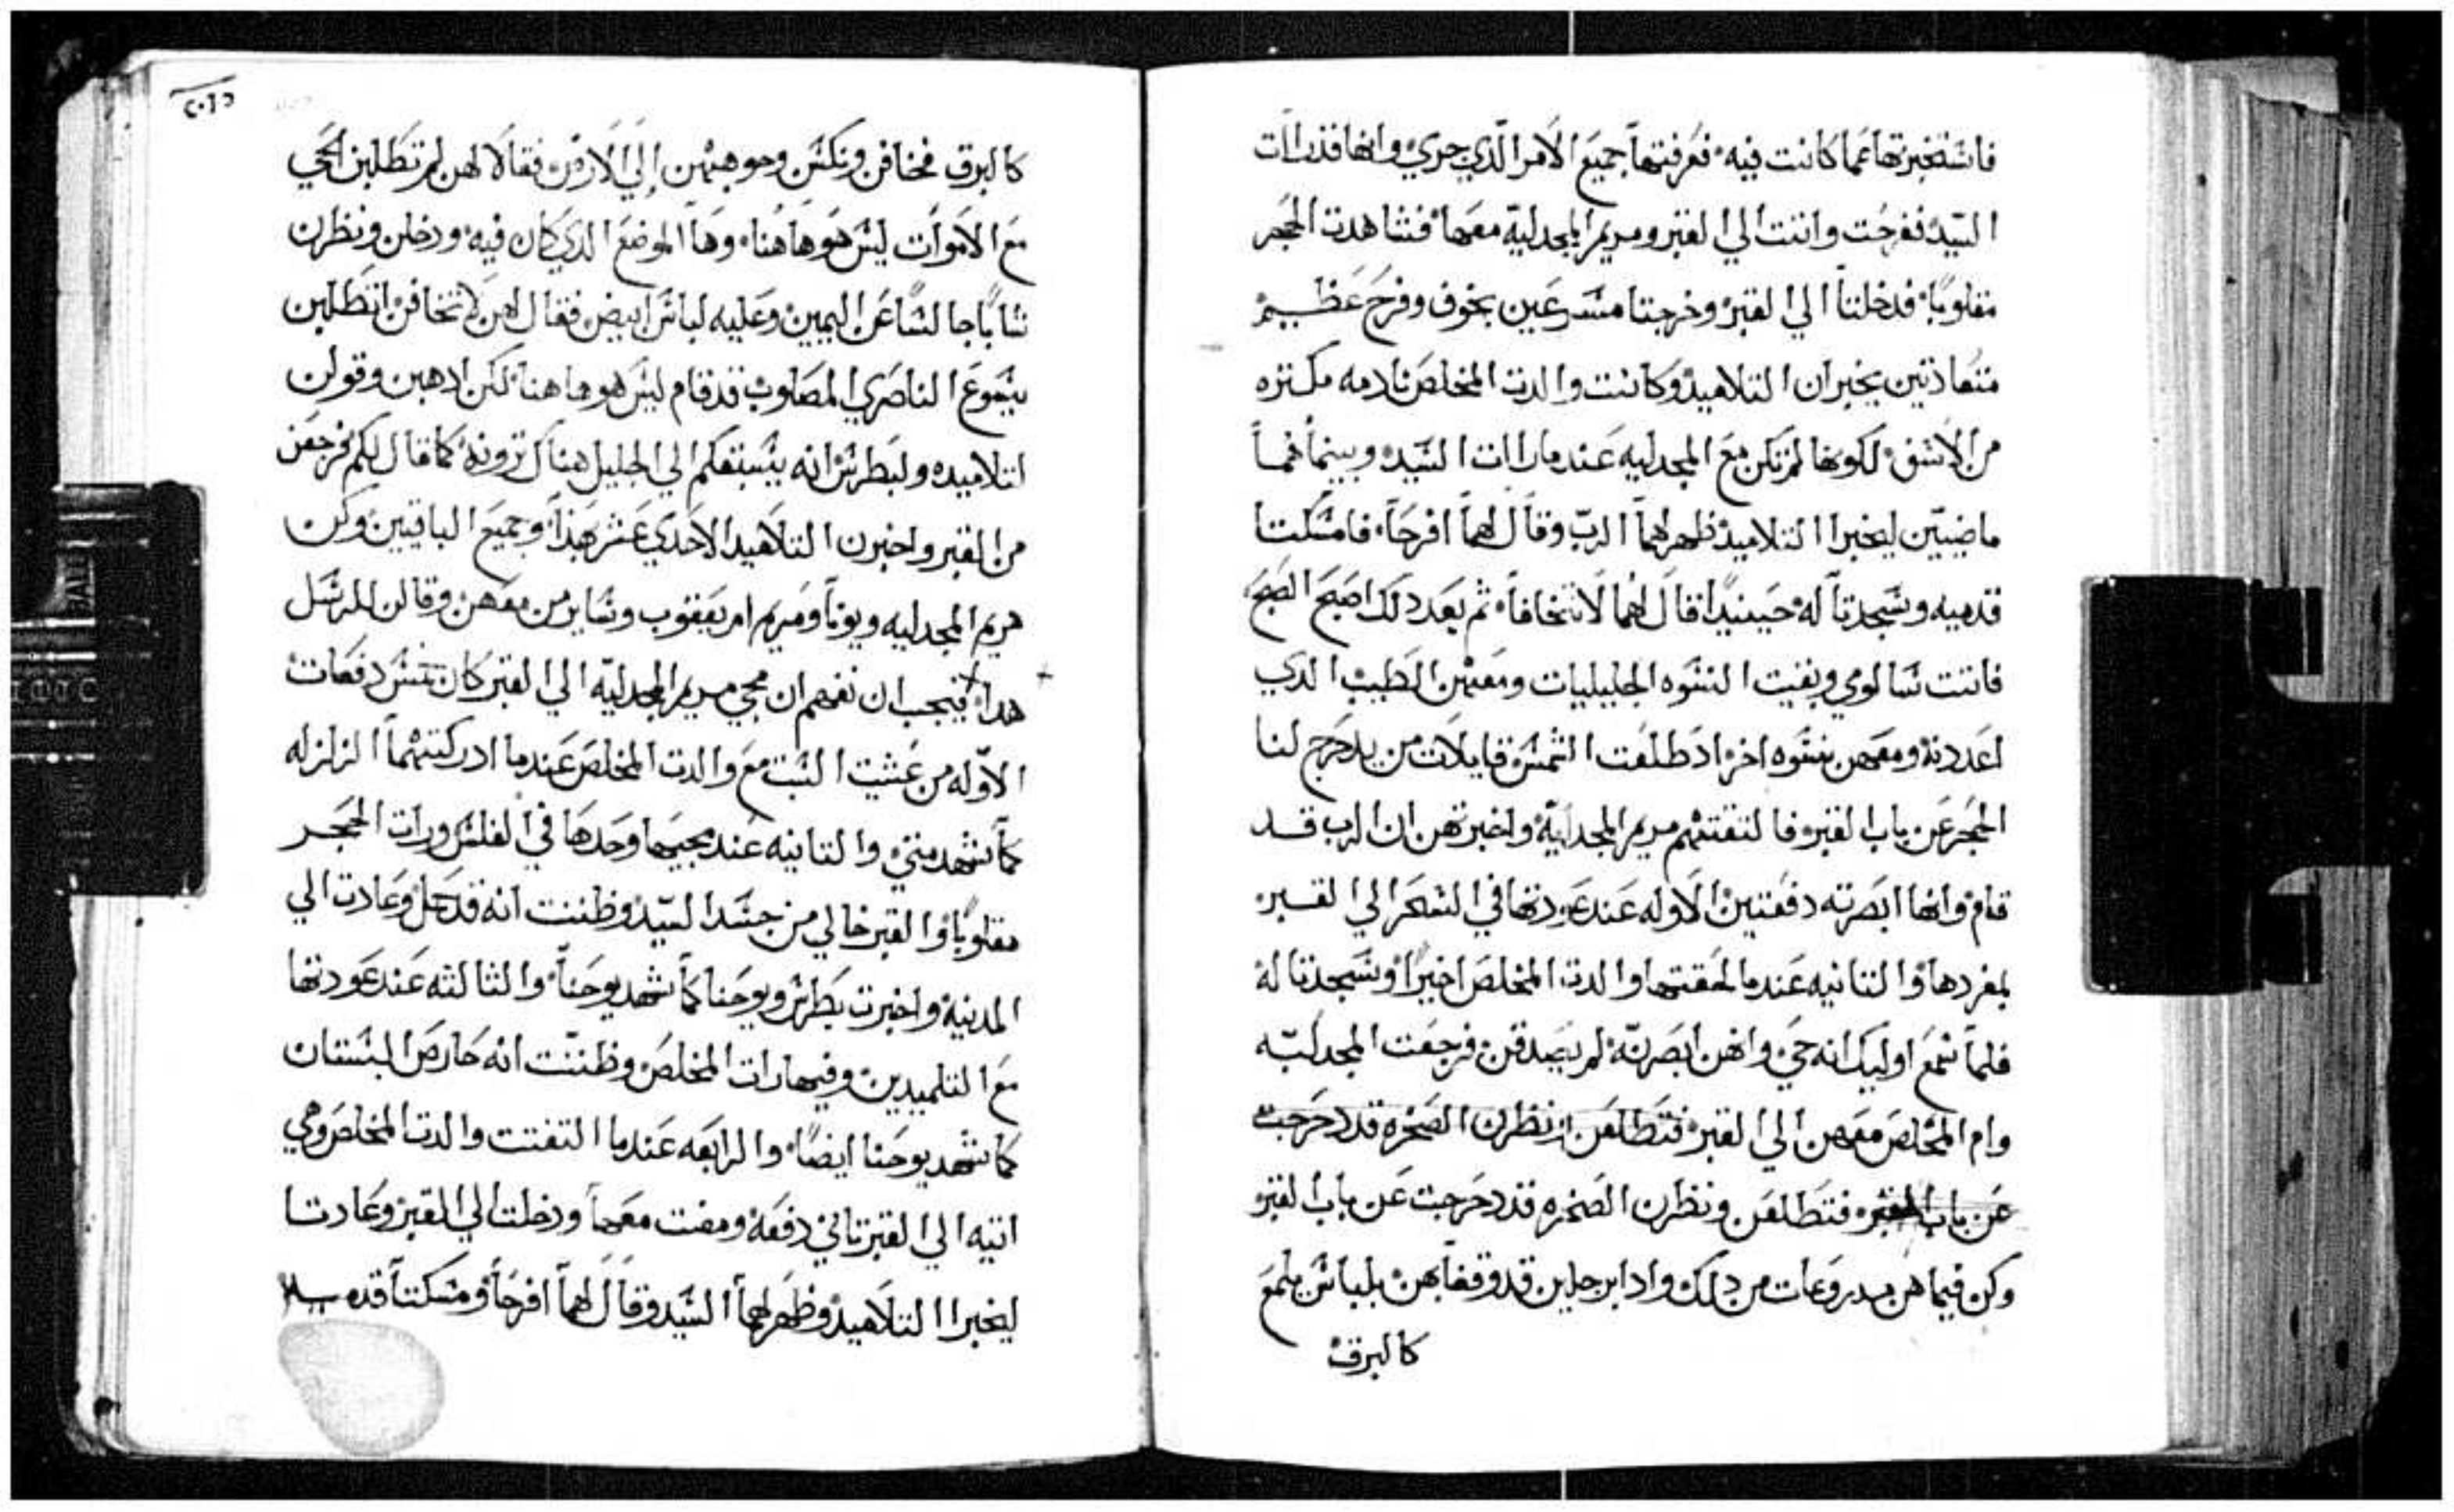 فاستخبرتها عما كانت فيه فعرفتها جميع الامر الذي جري وانها قد رات
السيد ففرحت واتت الي القبر ومريم المجدلية معها فشاهدت الحجر
مقلوبا فدخلتا الي القبر وخرجتا مسرعين بخوف وفرح عظيم
متعاديتين يخبران التلاميد وكانت والدت المخلص نادمه مكتره
من الاسف لكونها لم تكن مع المجدليه عند ما رات السيد وبينما هما
ماضيتين ليخبرا التلاميد ظهر لهما الرب وقال لهما افرحا فامسكتا
قدميه وسجدتا له حينيدا قال لهما لا تخافا ثم بعد دلك اصبح الصبح
فاتت سالومي وبقيت النسوه الجليليات ومعهن الطيب الدي
اعددنه ومعهن نسوه اخر اد طلعت الشمس قايلات من يدحرج لنا
الحجر عن باب القبر فالتقتهم مريم المجدلية واخبرتهن ان الرب قد
قام وانها ابصرته دفعتين الاوله عند عودتها في السحر الي القبر
بمفردها والتانيه عندما لحقتها والدت المخلص اخيرا وسجدتا له
فلما سمع اوليك انه حي وانهن ابصرنه لم يصدقن فرجعت المجدليه
وام المخلص معهن الي القبر فتطلعن ونظرن الصخره قد دحرجت
عن باب القبر فتطلعن ونظرن الصخره قد دحرجت عن باب القبر
وكن فيما هن مدروعات من دلك وادا برجلين قد وقفا بهن بلباس يلمع
كالبرق
كالبرق فخافن ونكسن وجوههن إلي الارض فقالا لهن لم تطلبن الحي
مع الاموات ليس هو هاهنا وها الموضع الدي كان فيه ودخلن ونظرن
شابا جالسا عن اليمين وعليه لباس ابيض فقال لهن لا تخافن اتطلبن
يسوع الناصري المصلوب قد قام ليس هو هاهنا لكن ادهبن وقولن
لتلاميده ولبطرس انه يسبقكم الي الجليل هناك ترونه كما قال لكم فرجعن
من القبر واخبرن التلاميد الاحدي عشر بهذا وجميع الباقيين وكن
مريم المجدليه ويونا ومريم ام يعقوب وساير من معهن وقالن للرسل
هدا فيجب ان نفهم ان مجي مريم المجدلية الي القبر كان ستت دفعات
الاوله من عشيت السبت مع والدت المخلص عندما ادركتهما الزلزله
كما شهد متي والتانيه عند مجيها وحدها في الغلس ورات الحجر
مقلوبا والقبر خالي من جسد السيد وظننت انه قد حل وعادت الي
المدينة واخبرت بطرس ويوحنا كما شهد يوحنا والثالثه عند عودتها
مع التلميدين وفيها رات المخلص وظننت انه حارص البستان
كما شهد يوحنا ايضا والرابعه عندما التقتت والدت المخلص وهي
اتيه الي القبر تاني دفعه ومضت معها ودخلت الي القبر وعادتا
ليخبرا التلاميد وظهر لهما السيد وقال لهما افرحا ومسكتا قدميه